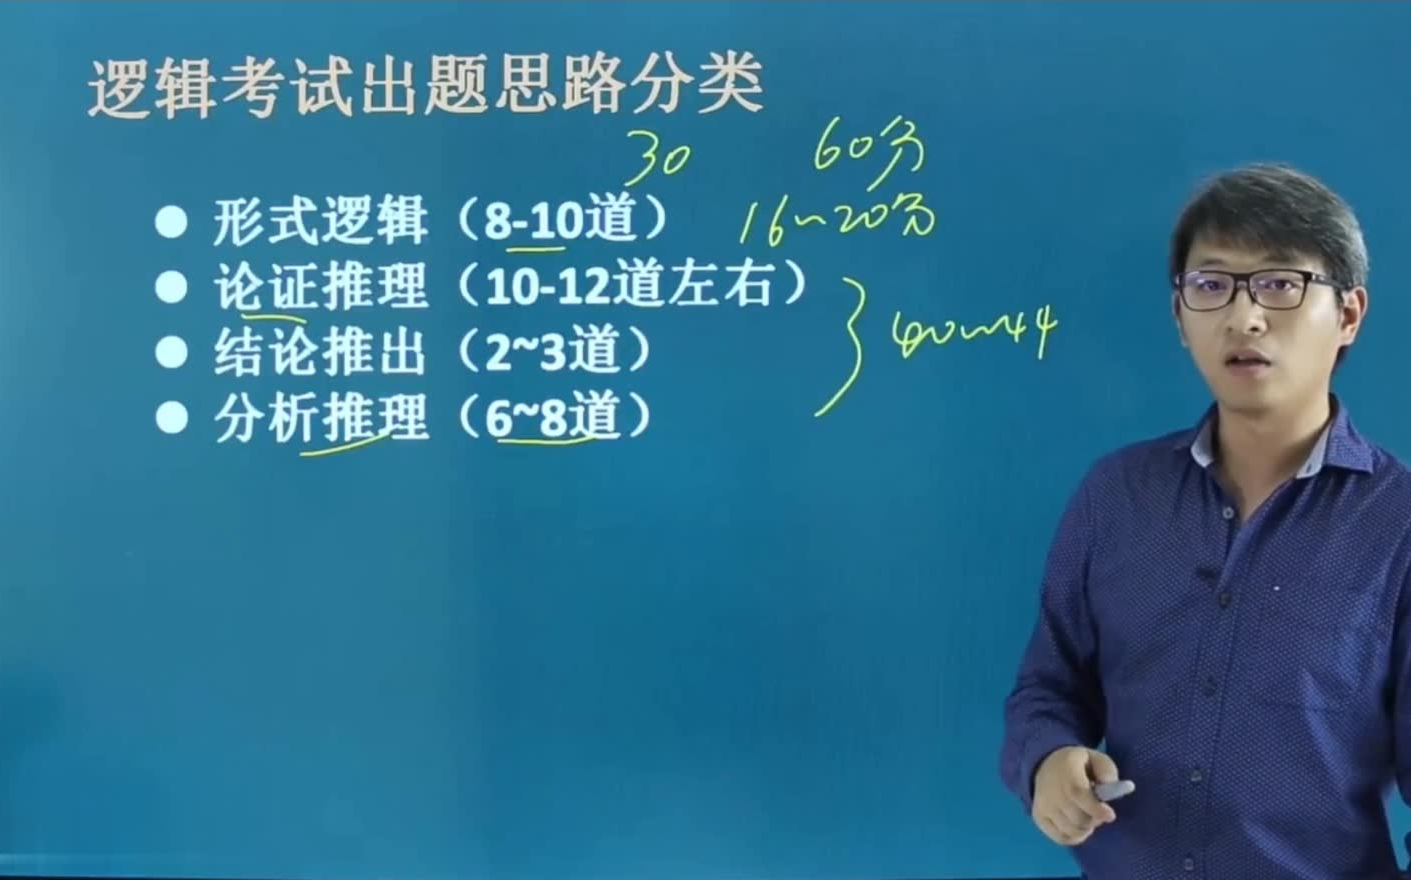 逻辑考试出题思路分类
30 60分
● 形式逻辑（8-10道） 16~20分
● 论证推理（10-12道左右）
● 结论推出（2~3道） 40~44
● 分析推理（6~8道）